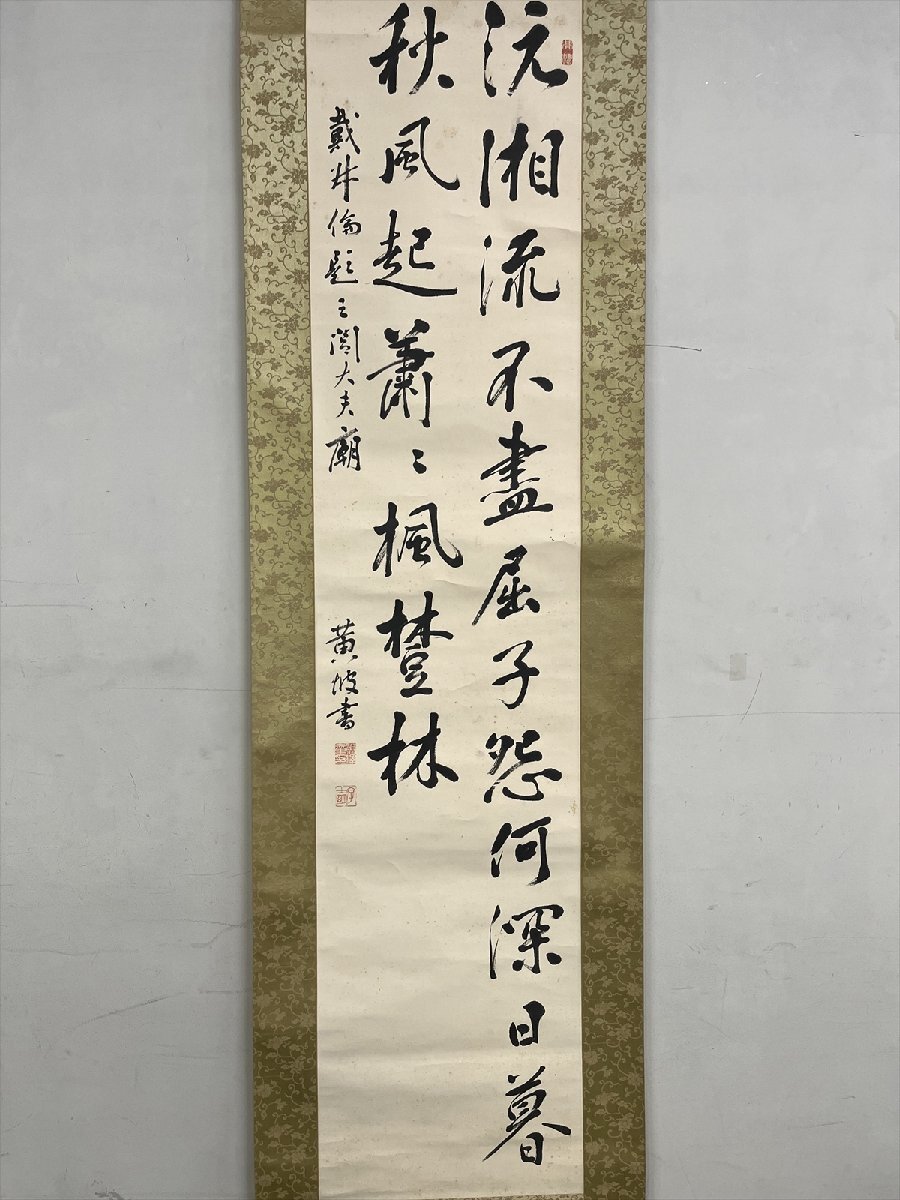 沅湘流不盡屈子怨何深日暮
秋風起蕭〻楓橙林
戴叔倫題三閭大夫廟
黄坡書